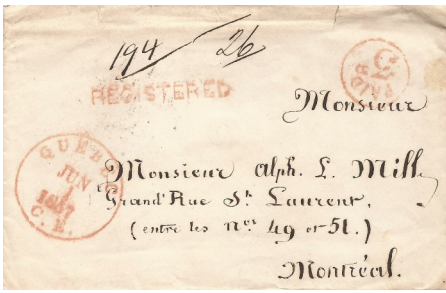 194 / 26
REGISTERED
PAID 3
Monsieur
QUÉBEC
JUN
1857
C. E.
Monsieur Alph. L. Mill
Grand' Rue St Laurent,
(entre les Nos 49 et 51.)
Montréal.